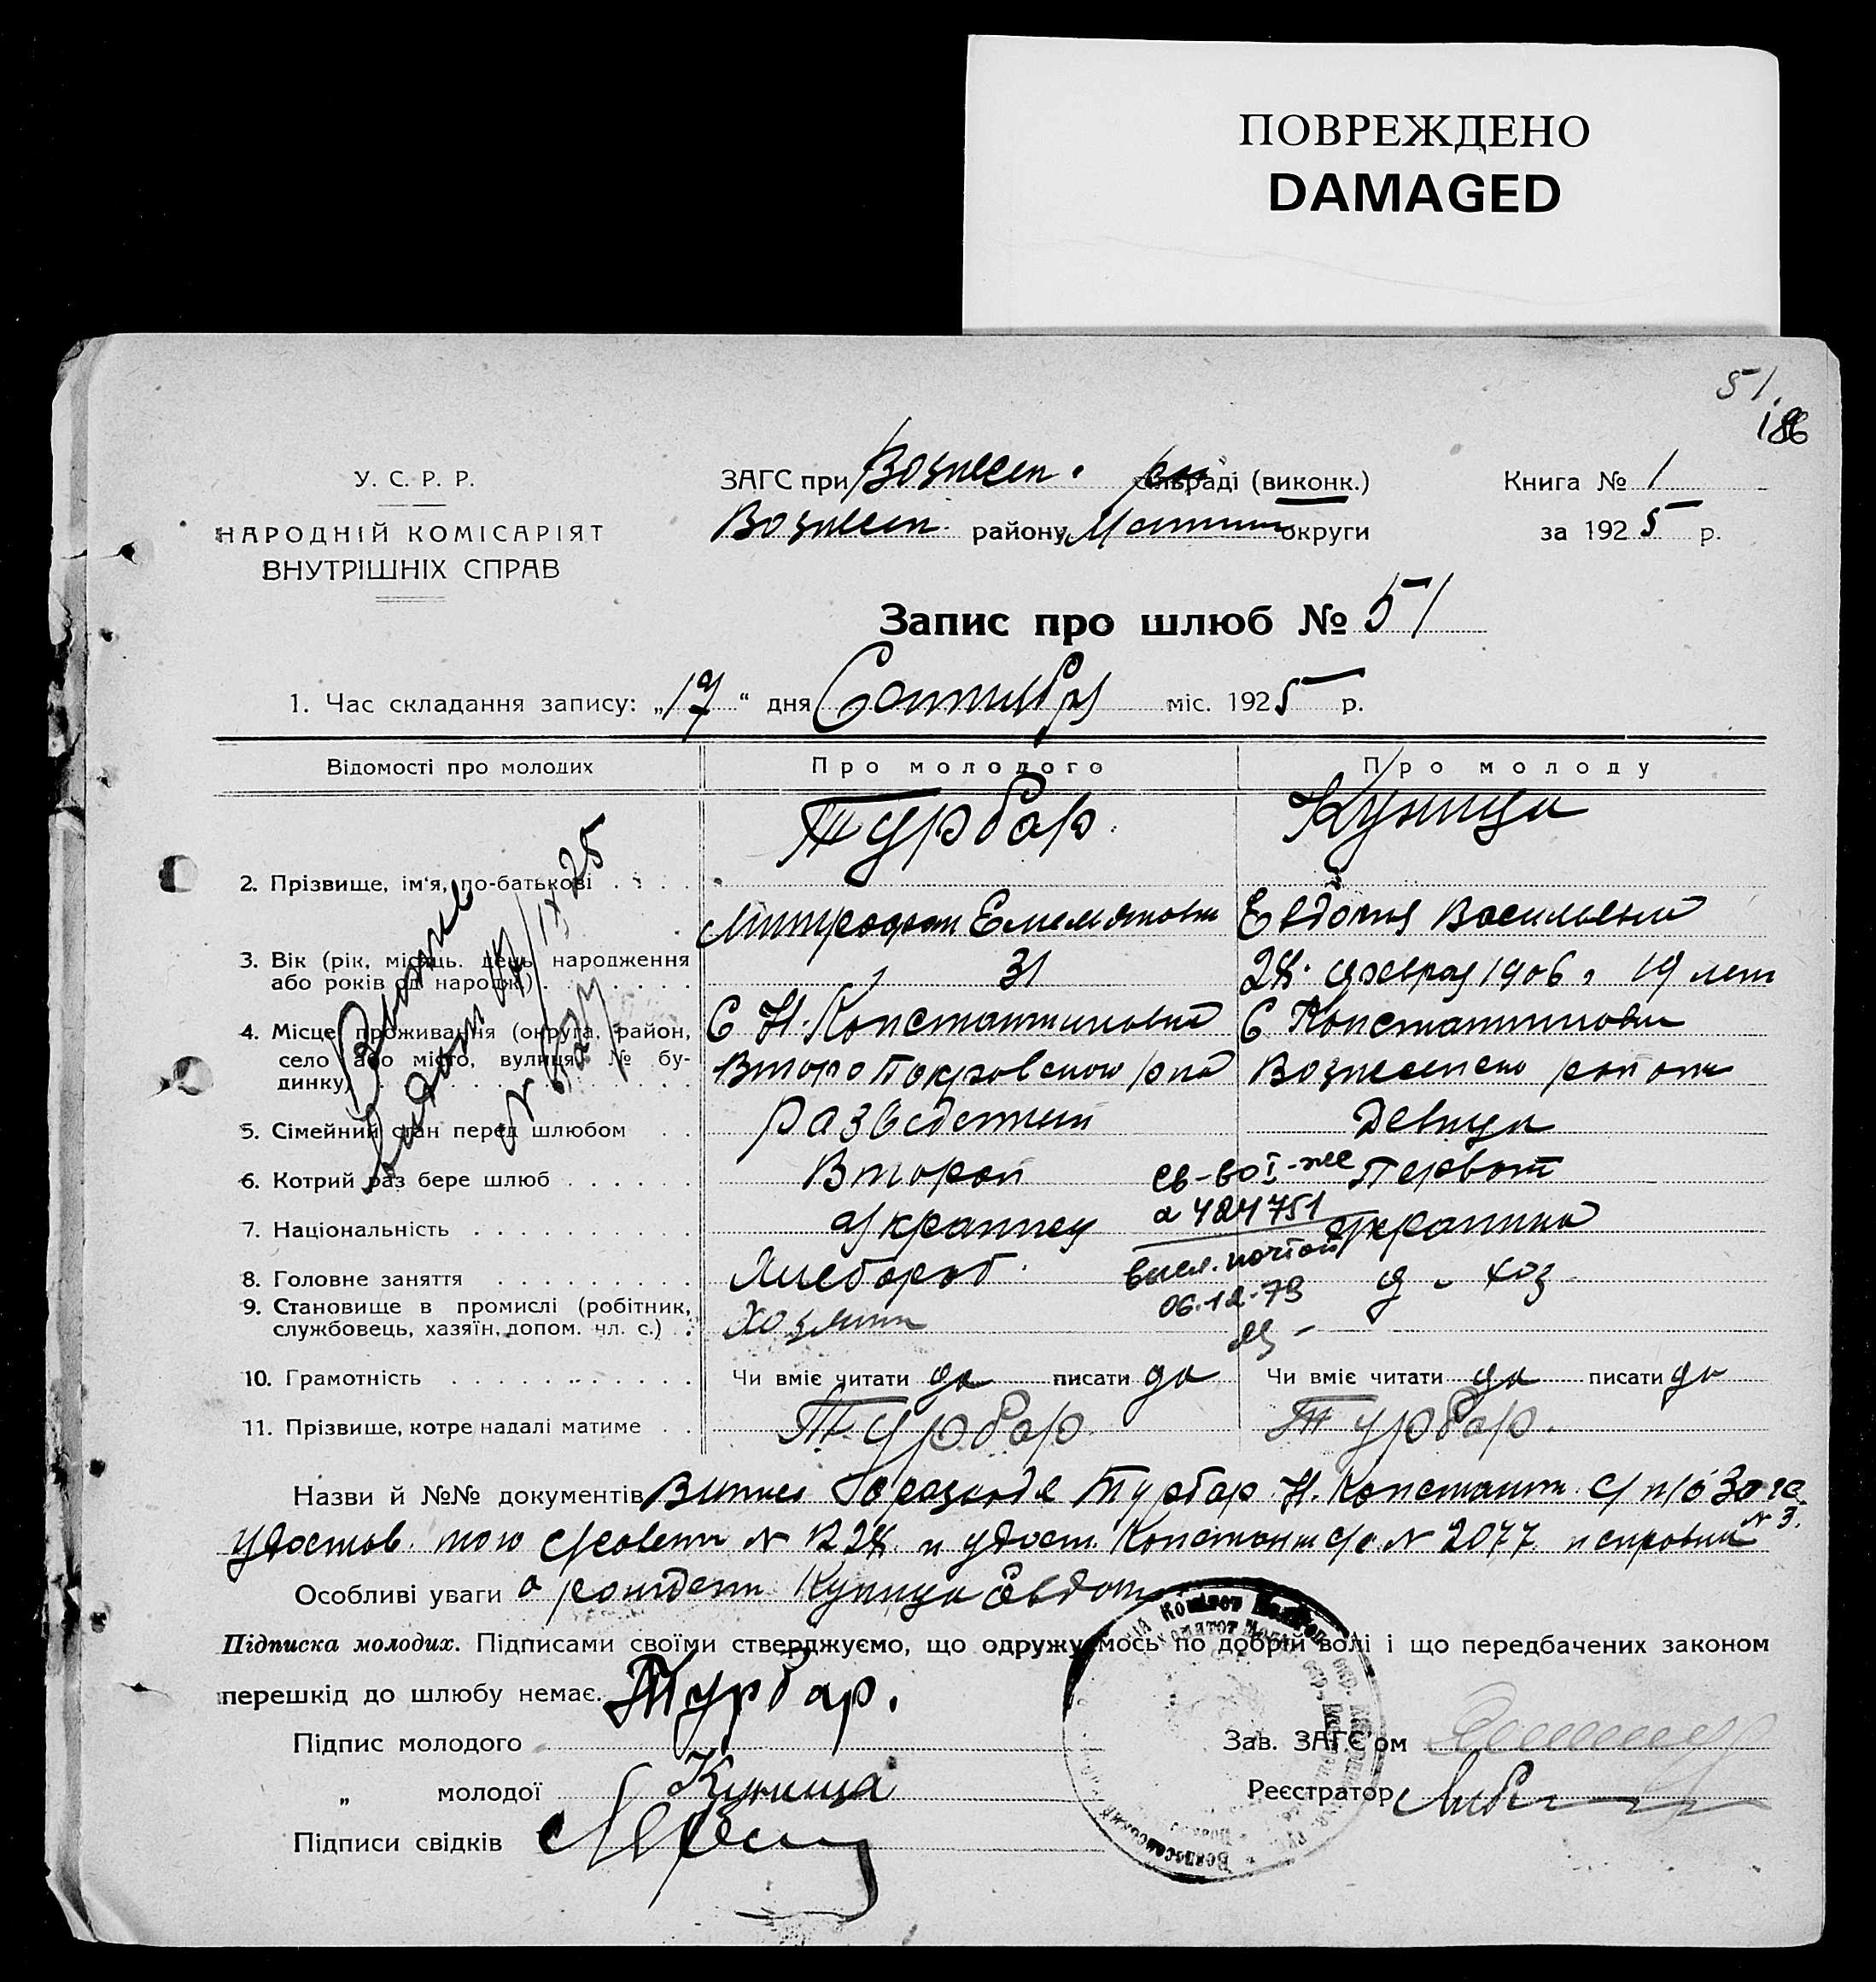 ПОВРЕЖДЕНО
DAMAGED
51.
186
У. С. Р. Р.
НАРОДНІЙ КОМІСАРІЯТ
ВНУТРІШНІХ СПРАВ
ЗАГС при Вознесен. сільраді (виконк.)
Вознесен. району округи
Книга № 1
за 1925 р.
Запис про шлюб № 51
1. Час складання запису: „19“ дня Сентября міс. 1925 р.
Відомості про молодих Про молодого Про молоду
Турбар Куница
2. Прізвище, ім'я, по-батькові . . . .
Митрофан Емельянович Евдокия Васильевна
3. Вік (рік, місяць, день народження
або років од народж.) . . . . . . . 31 28. февраля 1906 г 19 лет
4. Місце проживання (округа, район, С Н. Константиновка С Константиновка
село або місто, вулиця, № бу- Второ Покровского рна Вознесенского района
динку) . . . . . . . . . . . . .
5. Сімейний стан перед шлюбом . . Разведенный Девица
6. Котрий раз бере шлюб . . . . . . Второй Первый
св-во I-
424751
7. Національність . . . . . . . . . Украинец Украинка
высл. почтой
06.12.79
8. Головне заняття . . . . . . . . . Хлебороб д. хоз
9. Становище в промислі (робітник,
службовець, хазяїн, допом. чл. с.) . . Хозяин
10. Грамотність . . . . . . . . . . Чи вміє читати да писати да Чи вміє читати да писати да
11. Прізвище, котре надалі матиме . . Турбар Турбар.
Назви й №№ документів о разводе Турбар Н. Константин. с/
№ 3.
удостов. того с/совета № и удост. Константин с/с. № 2077 и справка
Особливі уваги о рожден Куница Евдок
Підписка молодих. Підписами своїми стверджуємо, що одружуємось по добрій волі і що передбачених законом
перешкід до шлюбу немає. Турбар.
Підпис молодого Зав. ЗАГС'ом
„ молодої Куница Реєстратор
Підписи свідків